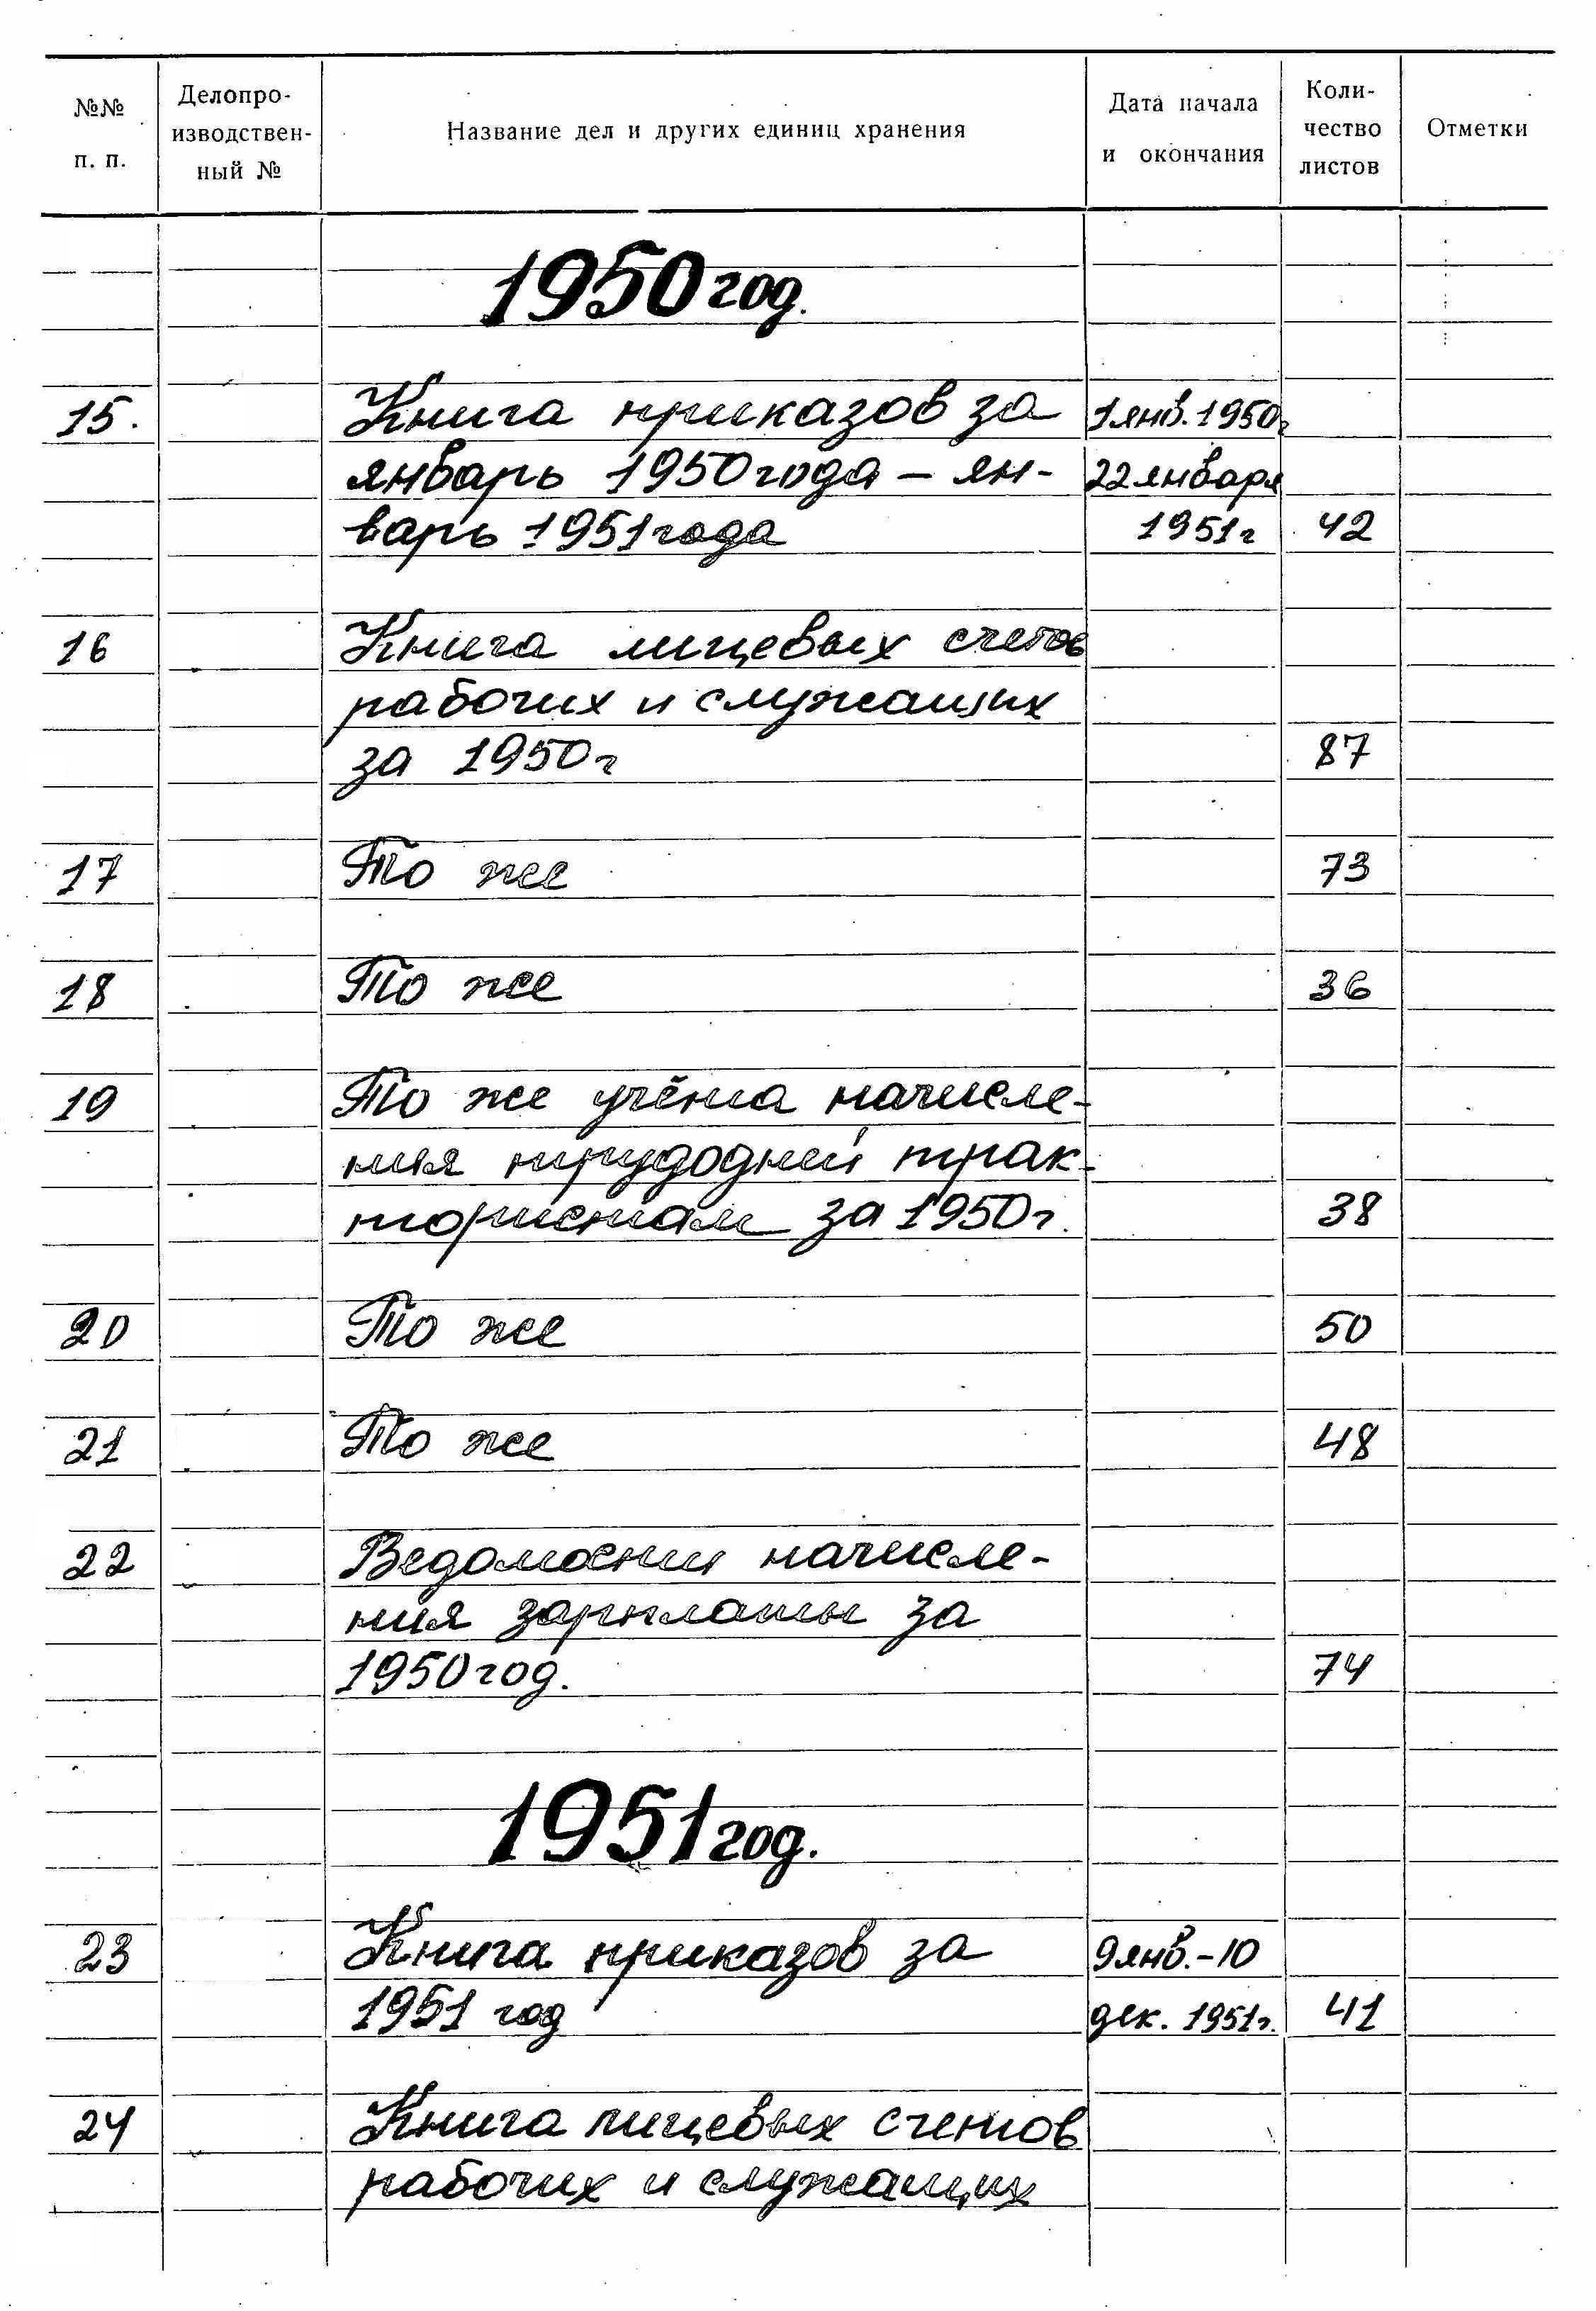 №№ п. п. Делопроизводствен-ный № Название дел и других единиц хранения Дата начала и окончания Коли-чество листов Отметки
1950 год.
15. Книга приказов за 1 янв. 1950г
январь 1950 года – ян- 22 января
варь 1951 года 1951г 42
16 Книга лицевых счетов
рабочих и служащих
за 1950г 87
17 То же 73
18 То же 36
19 То же учёта начисле-
ния трудодней трак-
тористам за 1950г. 38
20 То же 50
21 То же 48
22 Ведомости начисле-
ния зарплаты за
1950 год. 74
1951 год.
23 Книга приказов за 9 янв. – 10
1951 год дек. 1951г. 41
24 Книга лицевых счетов
рабочих и служащих